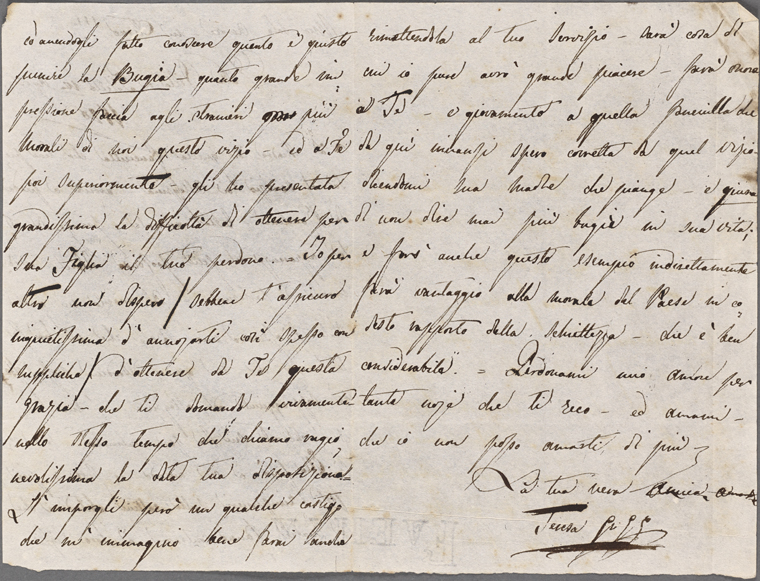 ed avendogli fatto conoscere quanto è giusto
punire la Bugia – quanto grande im
pressione faccia agli stranieri più
Morali di noi questo vizio ed a Te
poi superiormente gli ho presentata
grandissima la difficoltà di ottenere per
Sua Figlia il tuo perdono. Io per
altro non dispero / sebbene t'assicuro
inquietissima d'annojarti così spesso con
suppliche / d'ottenere da Te questa
Grazia – che ti domando vivamente
nello stesso tempo che chiamo ragio
nevolissima la data tua disposizione
D'imporgli però un qualche castigo
che m'immagino bene sarai anche
rimettendola al tuo Servizio – sarà cosa di
cui io pure avrò grande piacere – farà onore
a Te – e giovamento a quella fanciulla che
da qui innanzi spero corretta da quel vizio –
dicendomi sua madre che piange – e giura
di non dire mai più bugie in sua vita;
e anche questo esempio indirettamente
farà vantaggio alla morale del Paese in co
desto rapporto della schiettezza – che è ben
= Perdonami mio Amore per
tante noje che ti reco – ed amami –
che io non posso amarti di più –
La tua vera Amica
Teresa